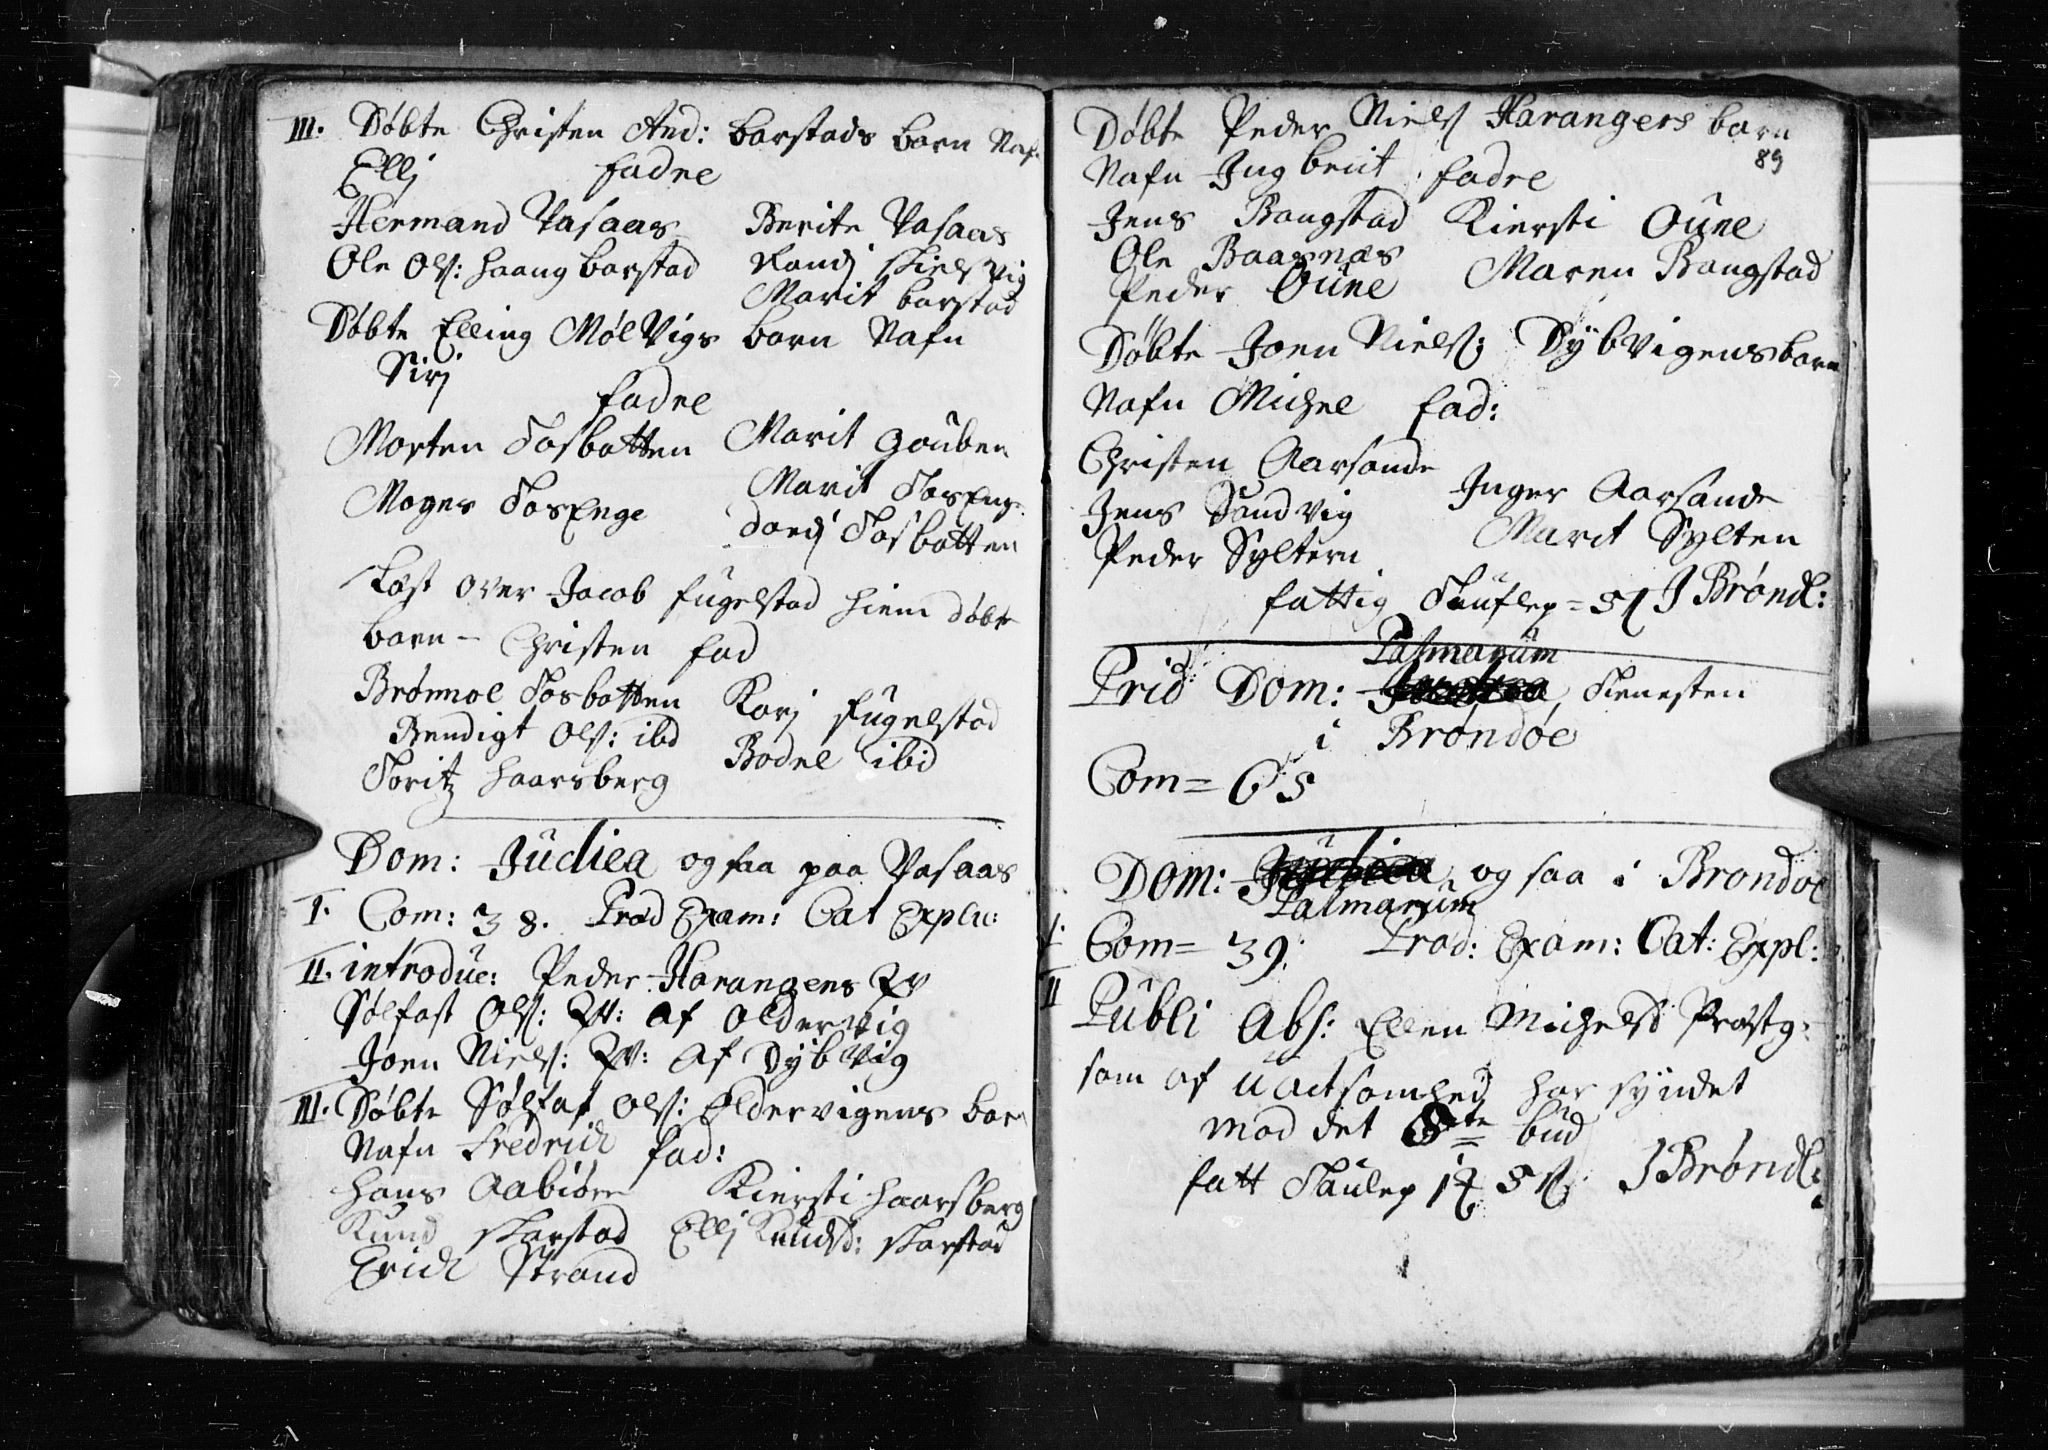 III. Døbte Christen And: barstads barn Naf:
Ellj fadre
Hermand Vasaas Berite Vasaas
Ole Ols: haangbarstad Randj skielsvig
Marit barstad
Døbte Elling Mølvigs barn Nafn
Sirj
fadre
Morten Tosbotten Marit Gouben
Moges TosEnge Marit TosEng:
dordj Tosbotten
Læst over Jacob fugelstad hiem døbte
barn – Christen fad
Brønmoe Tosbotten Karj fugelstad
Bendigt Ols: ibd Bodel ibid
Toritz haarsberg
Dom: Judica og saa paa Vasaas
I. Com: 38. Præd Exam: Cat Explic:
II. introduc: Peder Harangens Qv
Sølfast Ols: Qv: af oldervig
Joen Niels: Qv: af Dybvig
III. Døbte Sølfast Ols: Oldervigens barn
Nafn Fredrich fad:
hans Aabiøre Kiersti haarsberg
Knud skarstad Ellj Knudsd: skarstad
Erich Strand
Døbte Peder Niels Harangers barn
89
Nafn Ingbrict. fadre
Jens Bangstad Kiersti Oune
Ole Baasnæs Maren Bangstad
Peder Oune
Døbte Joen Niels: Dybvigens barn
Nafn Michel fad:
Christen Aarsande Inger Aarsande
Jens Sandvig Marit Sylten
Peder Syltern
fattig Taufler = 5 J Brøndl:
Palmarum
Prid Dom: Tienesten
i Brøndøe
Com = 65
Dom: Judica og saa i Brøndøe
Palmarum
I. Com = 39. Præd: Exam: Cat: Expl:
II Publi Abs: Ellen Michelsd Prøstg:
som af uactsomhed har syndet
mod det 6te bud
fatt Taulep 1 5 J Brøndl: